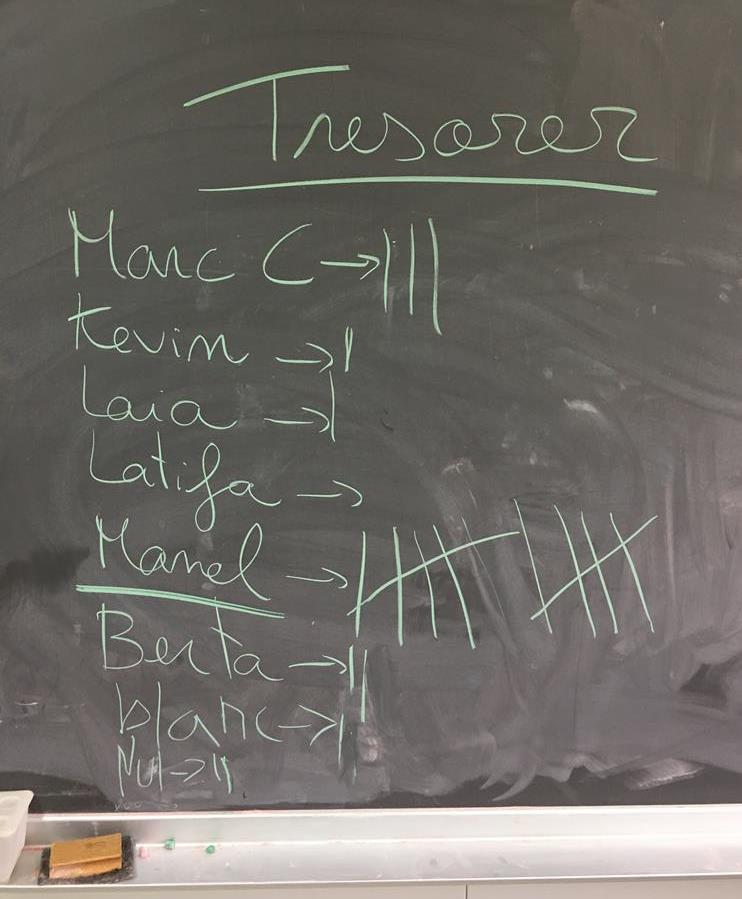 Tresorer
Marc C → |||
Kevin → |
Laia → |
Latifa →
Manel → 卌 卌
Berta → ||
blanc → |
Nul → ||